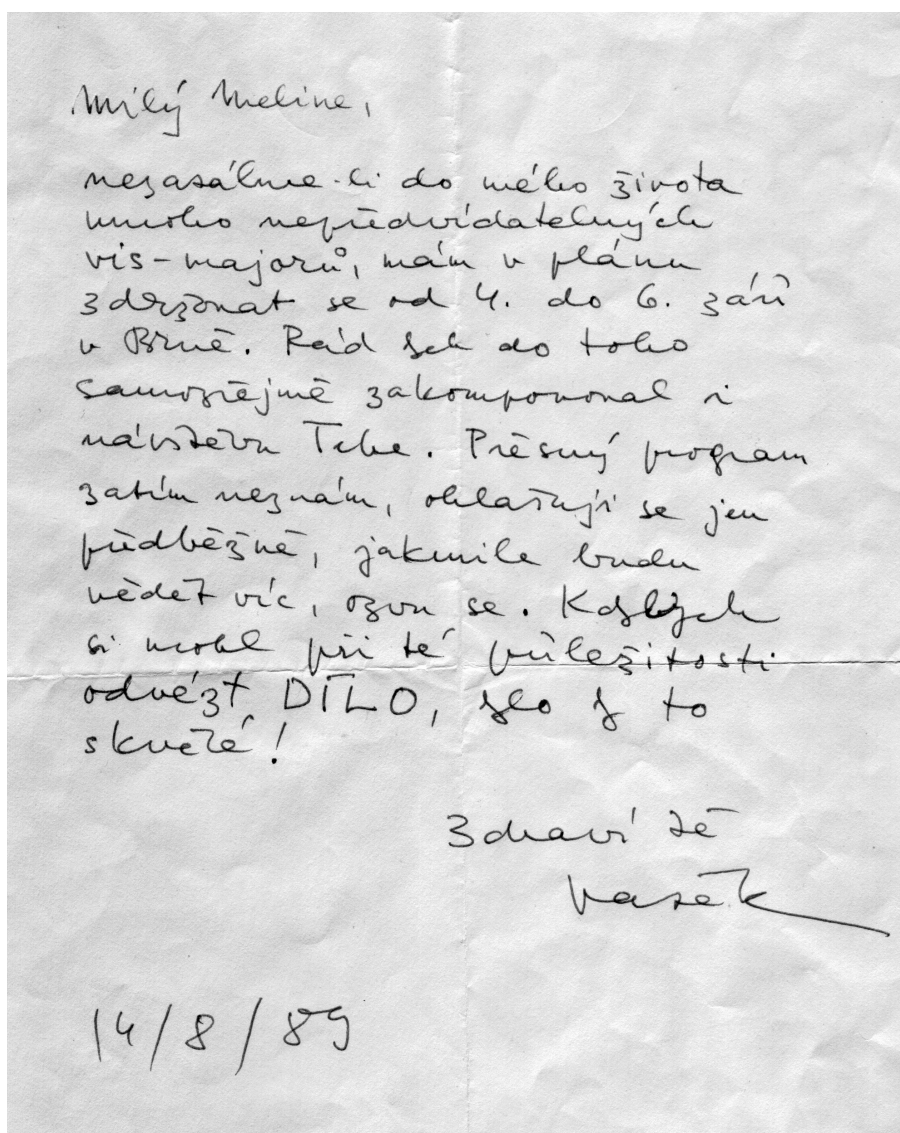 Milý Meline,
nezasáhne-li do mého života
mnoho nepředvídatelných
vis-majorů, mám v plánu
zdržovat se od 4. do 6. září
v Brně. Rád bych do toho
samozřejmě zakomponoval i
návštěvu Tebe. Přesný program
zatím neznám, ohlašuji se jen
předběžně, jakmile budu
vědět víc, ozvu se. Kdybych
si mohl při té příležitosti
odvézt DÍLO, bylo by to
skvělé!
Zdraví Tě
Vašek
14/8/89